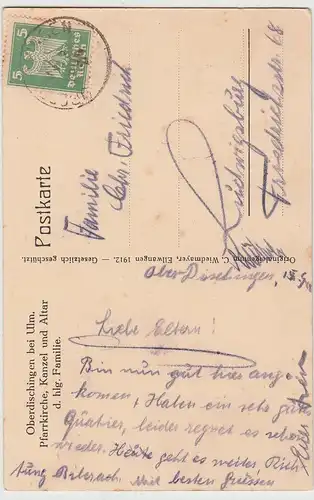 5 5
Deutsches
Reich
Postkarte
Familie
Chr. Friedrich
Ludwigsburg
Friedrichstr 68
Originalaufnahme v. C. Wiedmayer, Ellwangen 1912. — Gesetzlich geschützt.
Oberdischingen bei Ulm.
Pfarrkirche, Kanzel und Altar
d. hlg. Familie.
Oberdischingen,
Liebe Eltern!
Bin nun gut hier ange
komen, Haben ein sehr gutes
Quatier, leider regnet es schon
wieder. Heute geht es weiter Rich
tung Biberach. Mit besten Grüssen